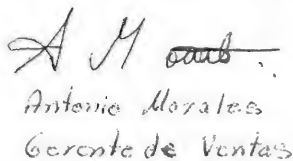 A M
Antonio Morales
Gerente de Ventas